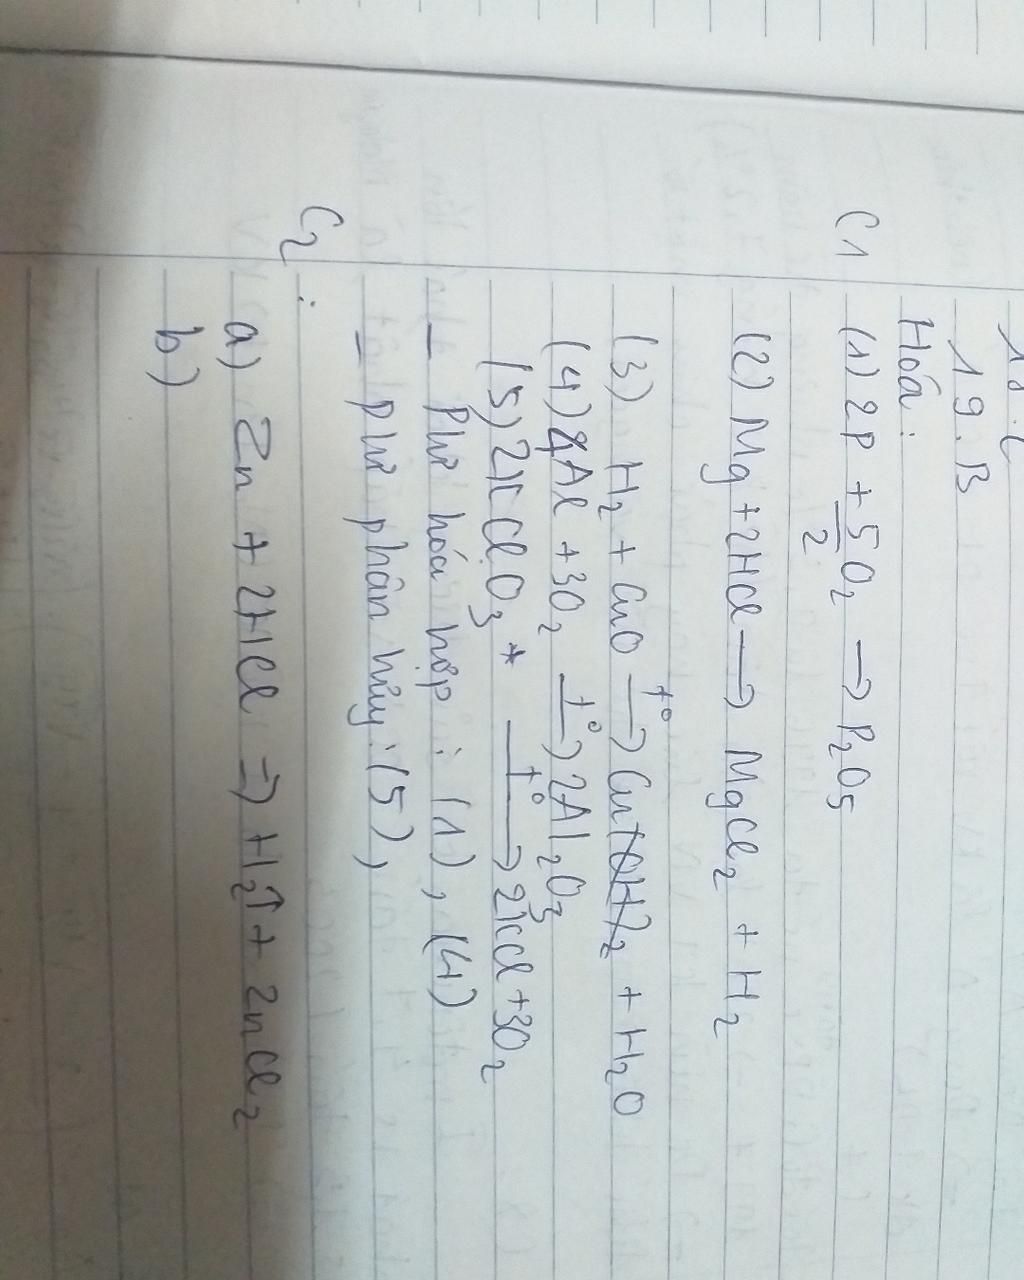 19.B
Hoá:
C1 (1) 2P + 5/2 O₂ → P₂O₅
(2) Mg + 2HCl → MgCl₂ + H₂
(3) H₂ + CuO t° → Cu + H₂O
(4) 4Al + 3O₂ t° → 2Al₂O₃
(5) 2KClO₃ t° → 2KCl + 3O₂
- Pư hóa hợp : (1), (4)
- pư phân hủy : (5),
C2 :
a) Zn + 2HCl => H₂↑ + ZnCl₂
b)